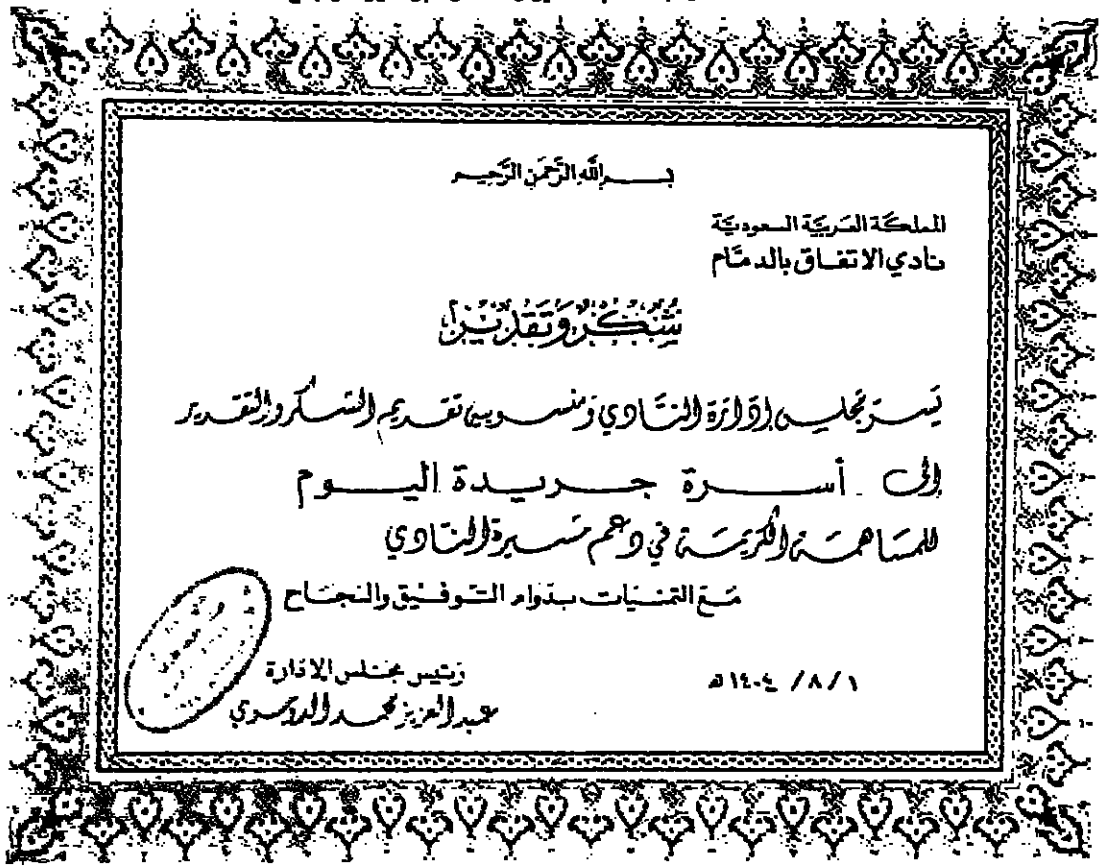 بسم الله الرحمن الرحيم
المملكة العربية السعودية
نادي الاتفاق بالدمام
شكر وتقدير
يسر مجلس إدارة النادي ومنسوبيه تقديم الشكر والتقدير
إلى أسرة جريدة اليوم
للمساهمة الكريمة في دعم مسيرة النادي
مع التمنيات بدوام التوفيق والنجاح
رئيس مجلس الادارة
عبد العزيز محمد الدوسري
١ / ٨ / ١٤٠٤ هـ